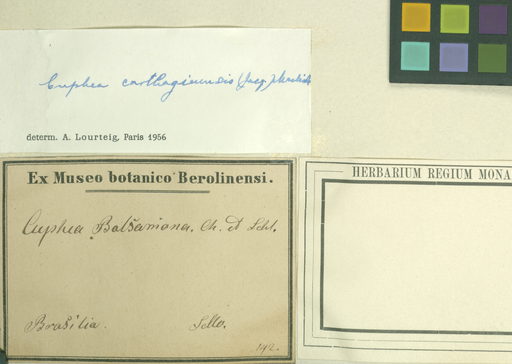 Cuphea carthaginensis (Jacq.) Macbride
determ. A. Lourteig, Paris 1956
Ex Museo botanico Berolinensi.
Cuphea Balsamona. Ch. et Schl.
Brasilia. Sello.
142.
HERBARIUM REGIUM MONA